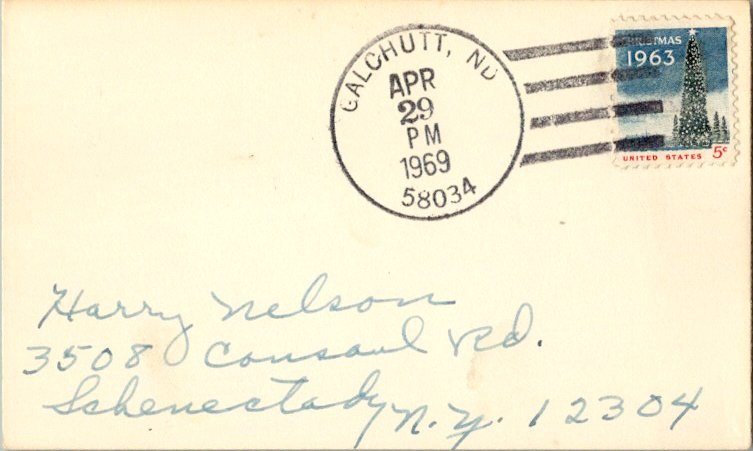 GALCHUTT, ND
APR
29
PM
1969
58034
CHRISTMAS
1963
UNITED STATES 5c
Harry Nelson
3508 Consaul Rd.
Schenectady N.Y. 12304